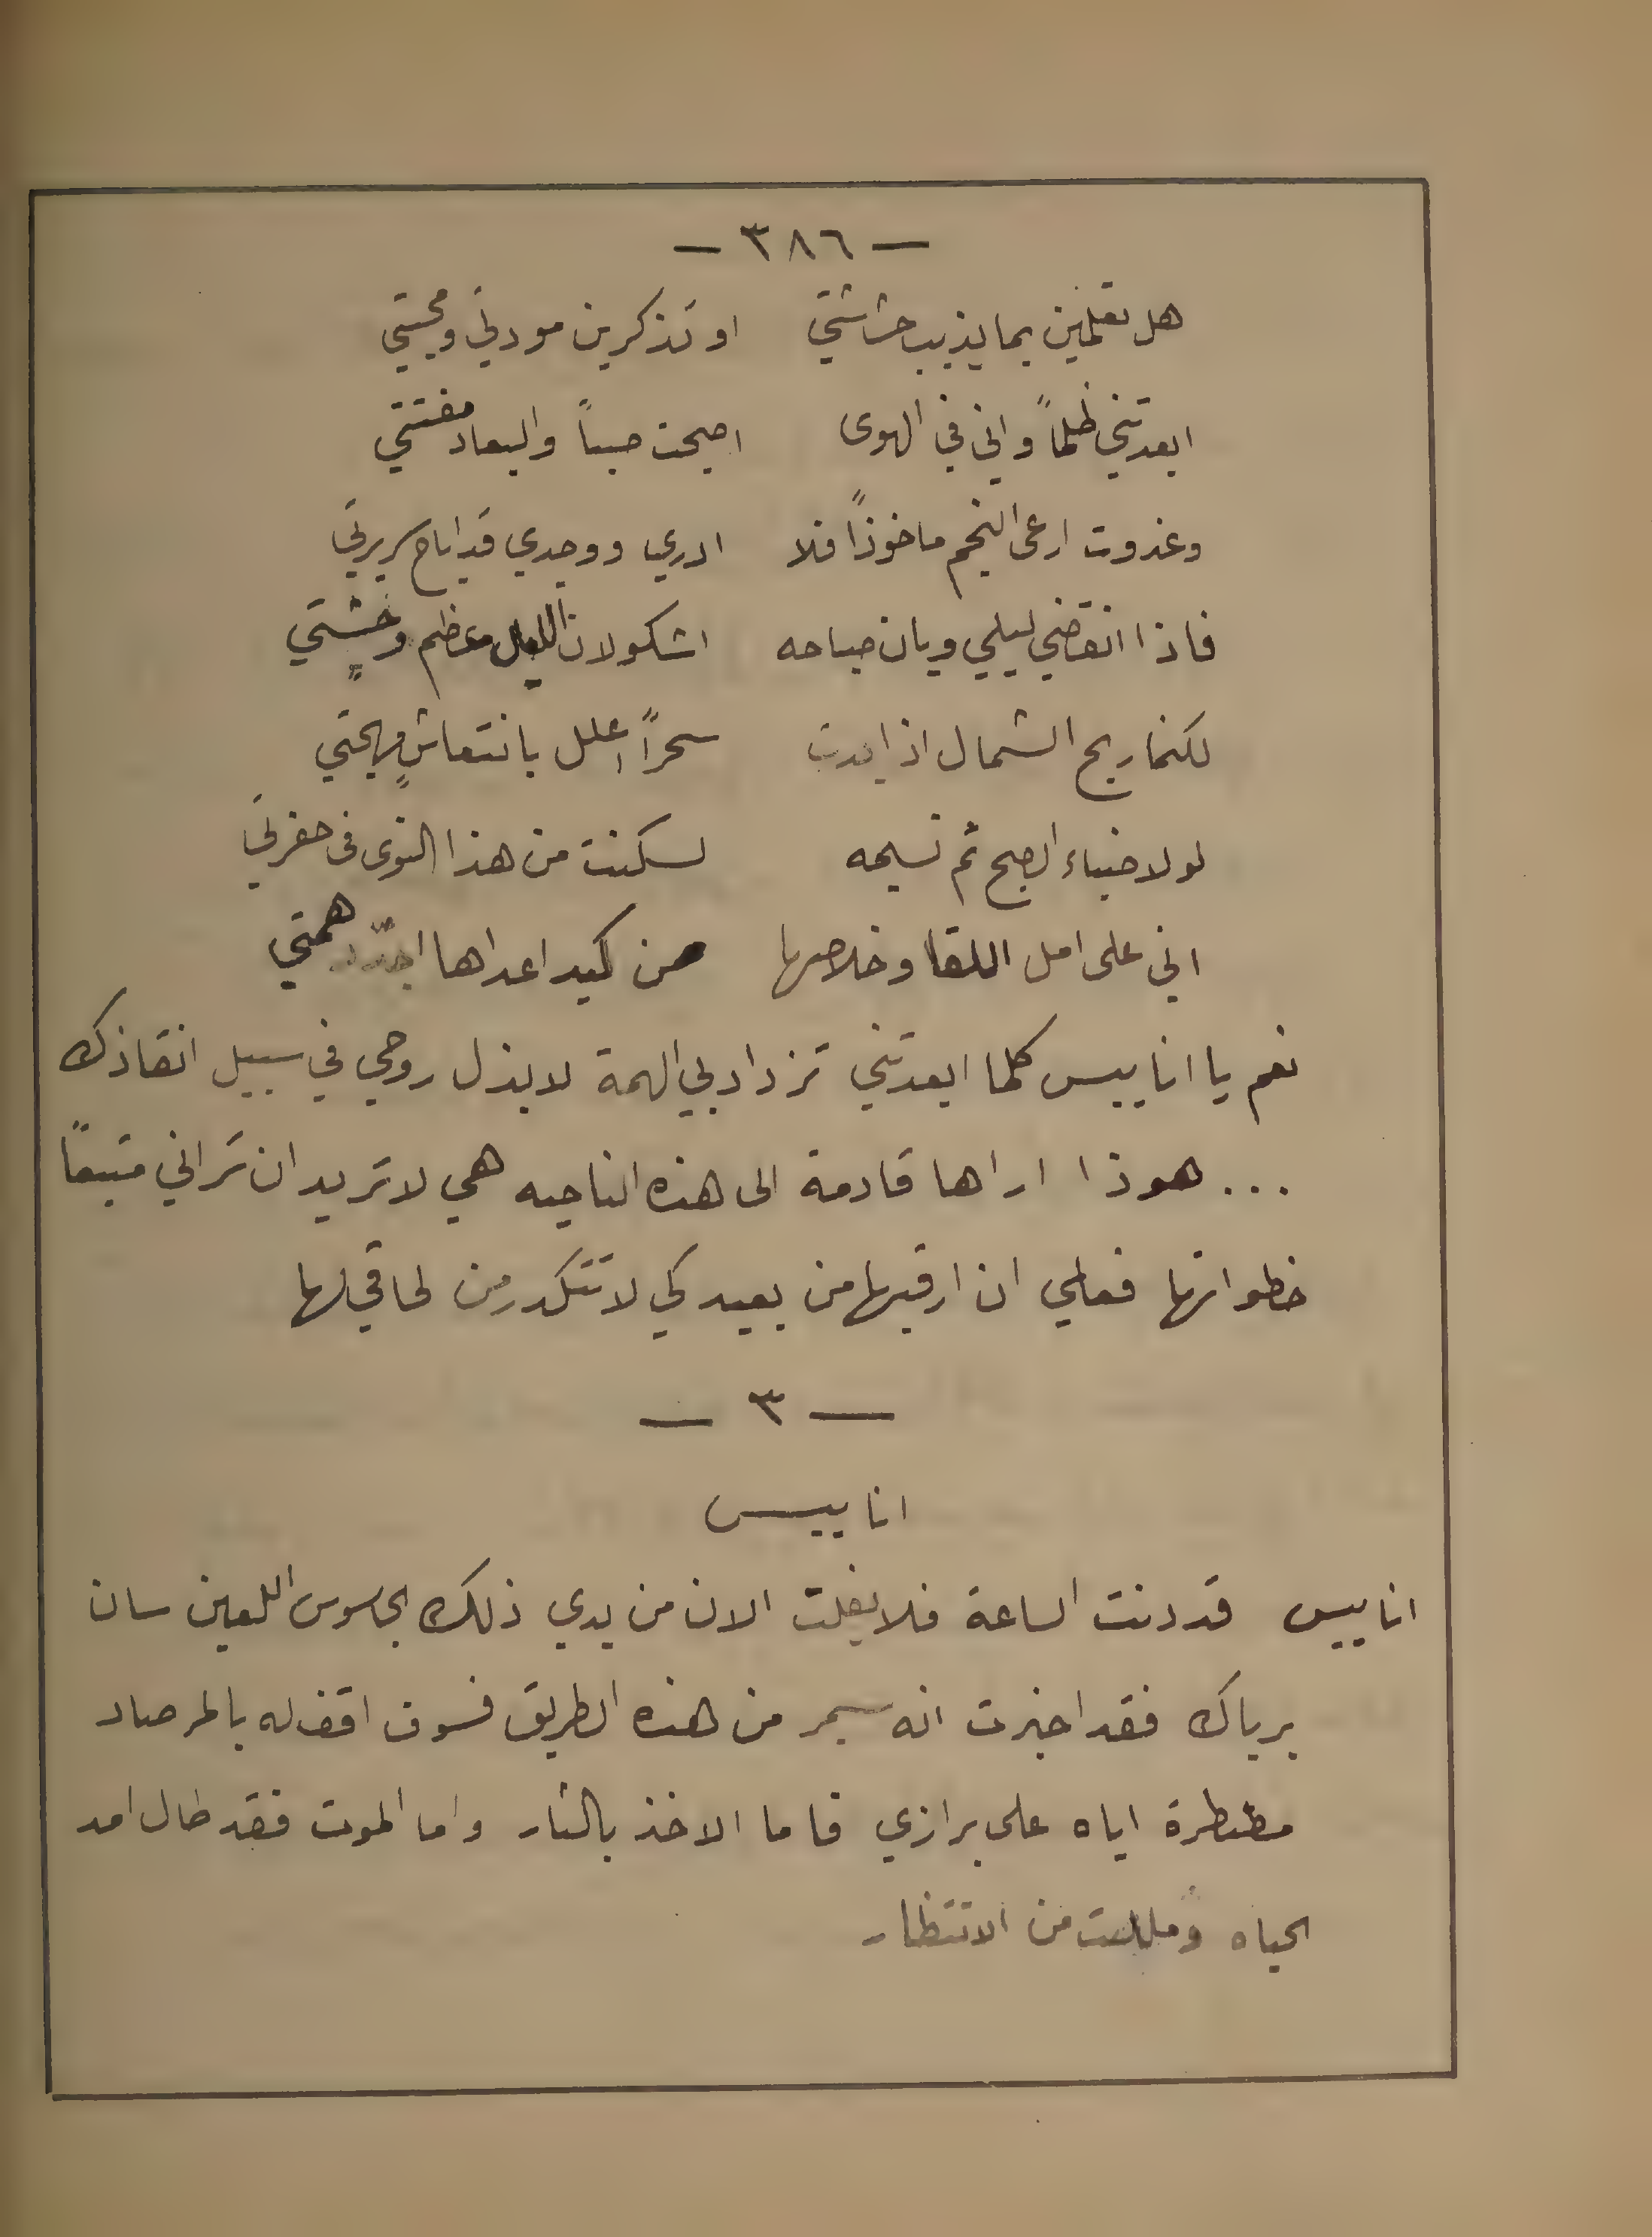 — ٣٨٦ —
هل تعلمين بما يذيب حشاشتي او تذكرين مودتي ومحبتي
ابعدتني ظلماً واني في الهوى اصبحت صباً والبعاد مفتتي
وغدوت ارعى النجم ماخوذاً فلا ادري ووجدي قد اباح سريرتي
فاذا انقضى ليلي وبان صباحه اشكو لان الليل معظم وحشتي
لكنما ريح الشمال اذا بدت سحراً اعلل بانتعاشٍ مهجتي
لولا ضياء الصبح ثم نسيمه لسكنت من هذا النوى في حفرتي
اني على امل اللقا وخلاصها من كيد اعداها اجدّد همتي
نعم يا اناييس كلما ابعدتني تزداد بي الهمة لابذل روحي في سبيل انقاذك
... هوذا اراها قادمة الى هذه الناحيه هي لا تريد ان تراني متبعاً
خطواتها فعلي ان ارقبها من بعيد كي لا تتكدر من لحاقي لها
— ٣ —
اناييس
اناييس قد دنت الساعة فلا يفلت الان من يدي ذلك الجاسوس اللعين سان
برياك فقد اخبرت انه سيمر من هذه الطريق فسوف اقف له بالمرصاد
مضطرة اياه على برازي فاما الاخذ بالثار واما الموت فقد طال امد
الحياه ومللت من الانتظار